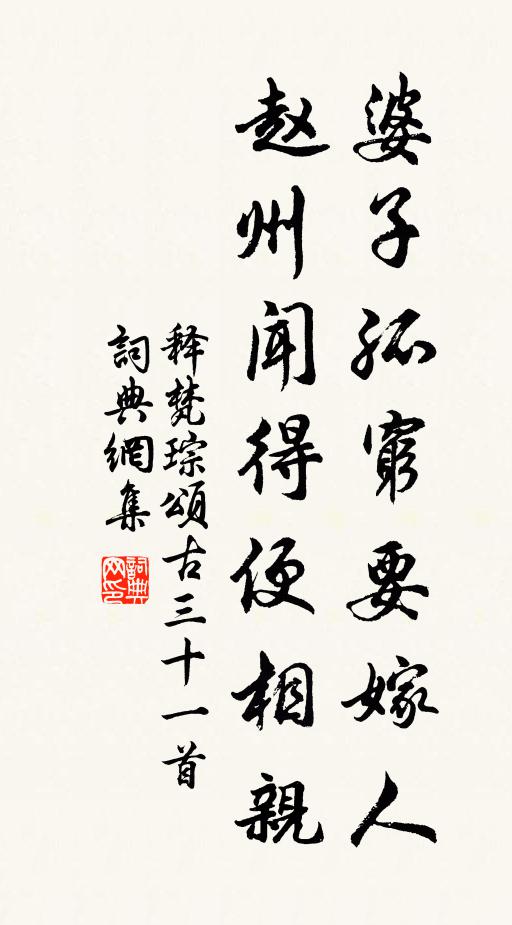 婆子孤窮要嫁人
赵州闻得便相親
释梵琮頌古三十一首
詞典網集
詞典网印